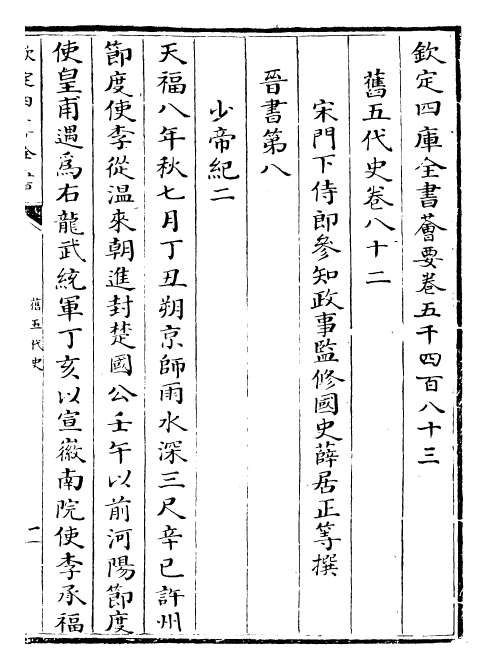 欽定四庫全書薈要卷五千四百八十三
舊五代史卷八十二
宋門下侍郎參知政事監修國史薛居正等撰
晉書第八
少帝紀二
天福八年秋七月丁丑朔京師雨水深三尺辛巳許州
節度使李從温來朝進封楚國公壬午以前河陽節度
使皇甫遇為右龍武統軍丁亥以宣徽南院使李承福
欽定四庫全書
舊五代史
一